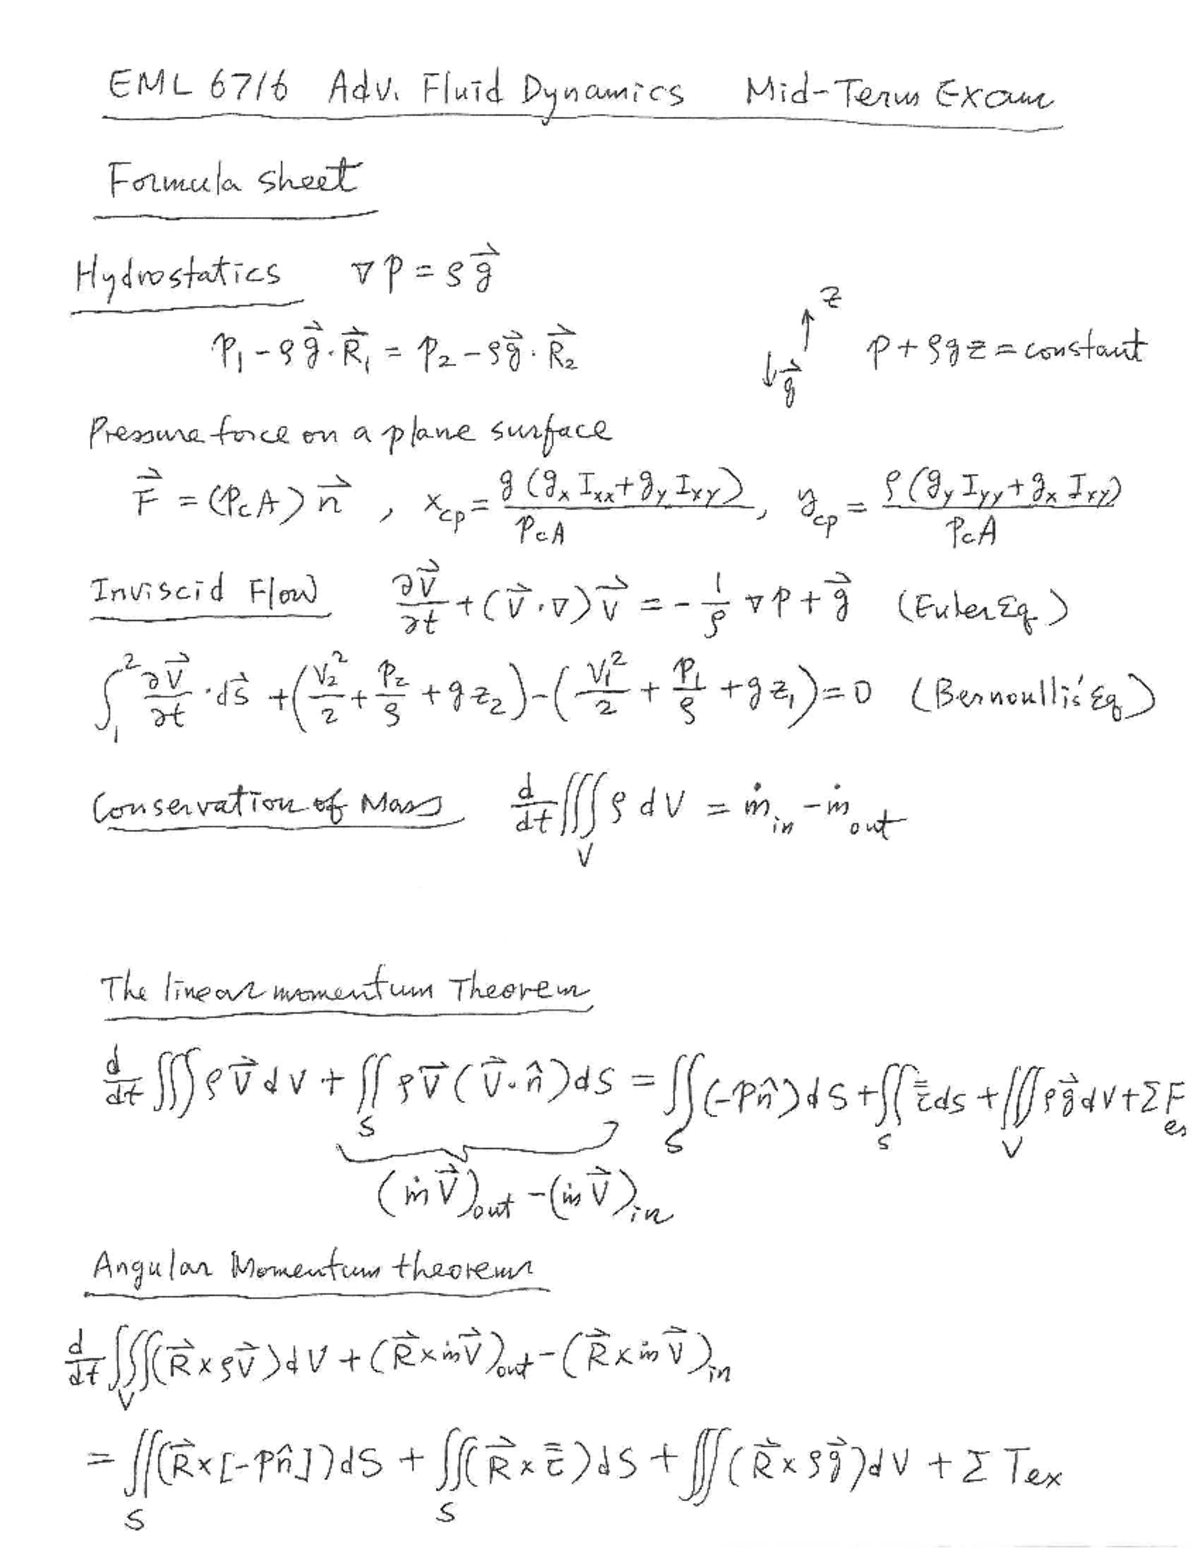 EML 6716 Adv. Fluid Dynamics Mid-Term Exam
Formula sheet
Hydrostatics ∇p = ρg⃗
p₁ - ρg⃗·R⃗₁ = p₂ - ρg⃗·R⃗₂ g⃗ z p + ρgz = constant
Pressure force on a plane surface
F⃗ = (PcA) n⃗ , x_cp = g (gₓ Iₓₓ + g_y I_xy) / PcA , y_cp = ρ (g_y I_yy + gₓ I_xy) / PcA
Inviscid Flow ∂V⃗/∂t + (V⃗·∇)V⃗ = - 1/ρ ∇p + g⃗ (Euler Eq.)
∫₁² ∂V⃗/∂t · ds⃗ + (V₂²/2 + P₂/ρ + gz₂) - (V₁²/2 + P₁/ρ + gz₁) = 0 (Bernoulli's Eq)
Conservation of Mass d/dt ∭_V ρ dV = ṁ_in - ṁ_out
The linear momentum Theorem
d/dt ∭ ρV⃗ dV + ∬_S ρV⃗ (V⃗·n̂) dS = ∬_S (-pn̂) dS + ∬_S τ̿ ds + ∭_V ρg⃗ dV + ΣF_ex
(ṁV⃗)_out - (ṁV⃗)_in
Angular Momentum theorem
d/dt ∭_V (R⃗ × ρV⃗) dV + (R⃗ × ṁV⃗)_out - (R⃗ × ṁV⃗)_in
= ∬_S (R⃗ × [-pn̂]) dS + ∬_S (R⃗ × τ̿) dS + ∭ (R⃗ × ρg⃗) dV + Σ Tex